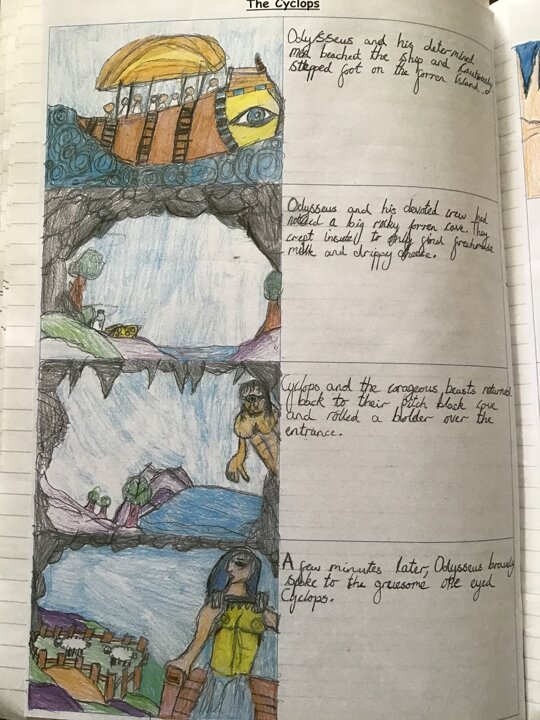 The Cyclops
Odysseus and his determined
men beached the ship and
stepped foot on the forren island.
Odysseus and his devoted crew had
noticed a big rocky forren cave. They
crept insidely to only find freshmade
milk and drippy cheese.
Cyclops and the corageous beasts returned
back to their pitch black cave
and rolled a bolder over the
entrance.
A few minutes later, Odysseus bravely
spoke to the gruesome one eyed
Cyclops.